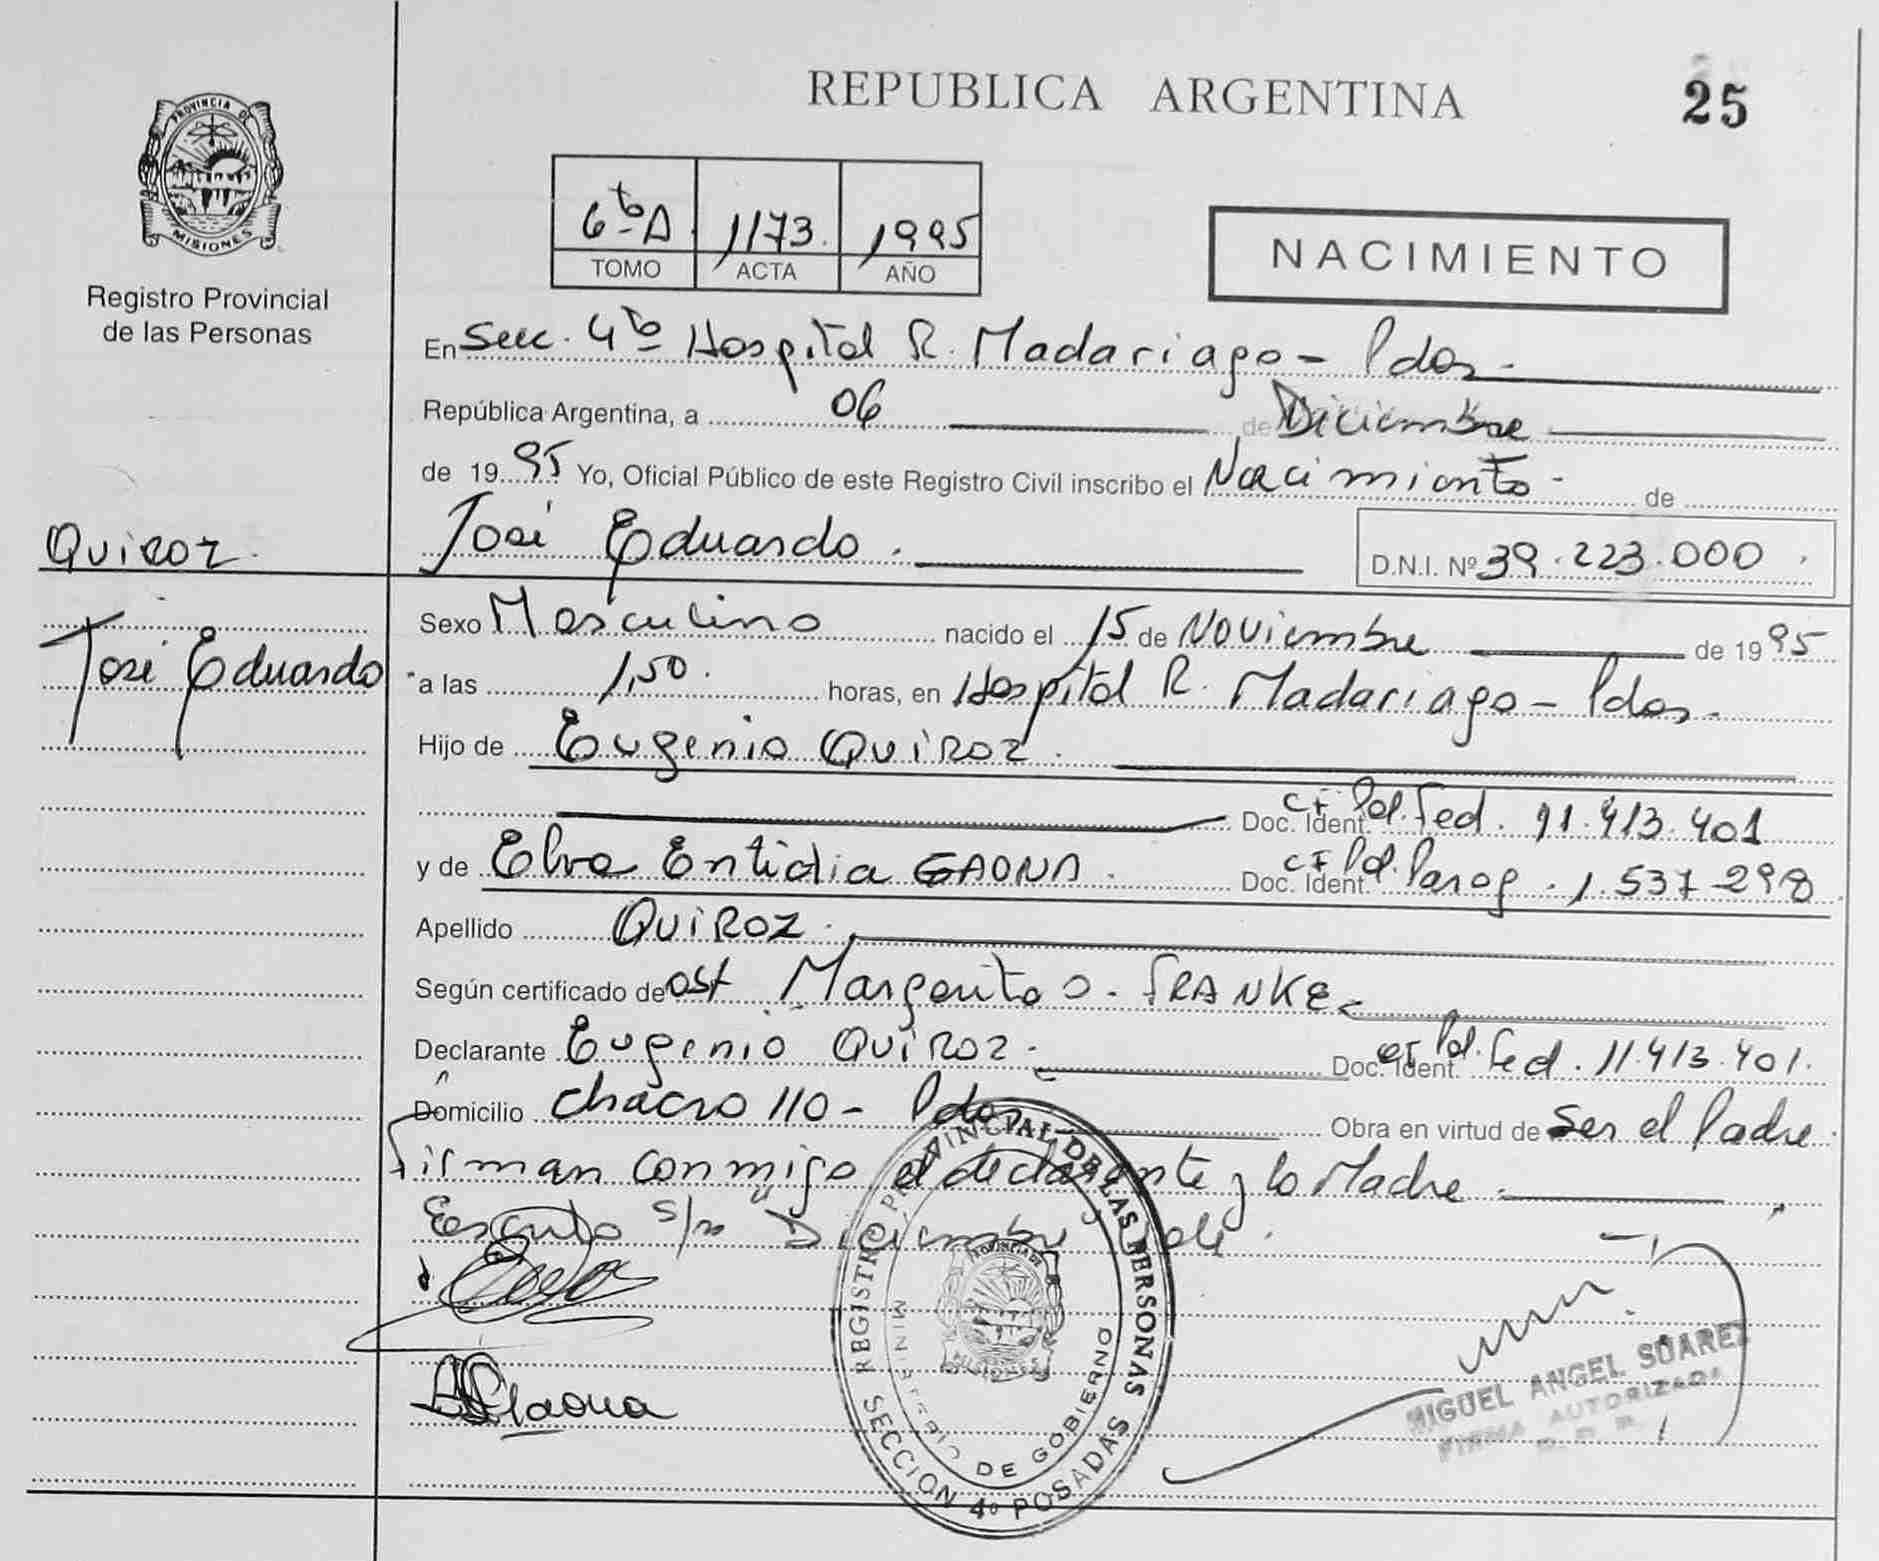 REPUBLICA ARGENTINA
25
PROVINCIA DE MISIONES
Registro Provincial
de las Personas
6toA 1173. 1995
TOMO ACTA AÑO
NACIMIENTO
En Secc. 4to Hospital R. Madariaga - Pdas.
República Argentina, a 06 de Diciembre
de 1995 Yo, Oficial Público de este Registro Civil inscribo el Nacimiento - de
QUIROZ.
José Eduardo.
D.N.I. Nº 39.223.000.
José Eduardo
Sexo Masculino nacido el 15 de Noviembre de 1995
a las 1,50. horas, en Hospital R. Madariaga - Pdas.
Hijo de Eugenio QUIROZ.
Doc. Ident. CI Pol. Fed. 11.413.401
y de Elva Entidia GAONA. Doc. Ident. CI Pol. Parag. 1.537.298
Apellido QUIROZ.
Según certificado de ost Margarita O. FRANKE
Declarante Eugenio QUIROZ. Doc. Ident. CI Pol. Fed. 11.413.401.
Domicilio Chacra 110 - Pdas Obra en virtud de ser el Padre.
Firman conmigo el declarante y la Madre.
s/r "Diciembre" Vale.
REGISTRO PROVINCIAL DE LAS PERSONAS
MINISTERIO DE GOBIERNO
PROVINCIA DE MISIONES
SECCION 4º POSADAS
Gaona
MIGUEL ANGEL SUAREZ
FIRMA AUTORIZADA